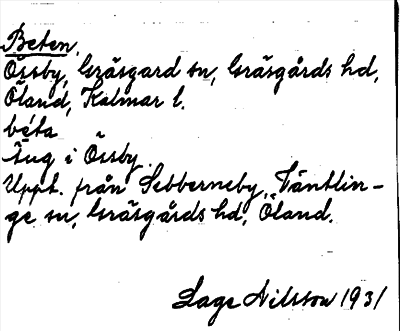 Beten,
Össby, Gräsgard sn, Gräsgårds hd,
Öland, Kalmar l.
béta
Äng i Össby.
Uppt. från Sebberneby, Väntlin-
ge sn, Gräsgårds hd, Öland.
Lage Nilsson 1931